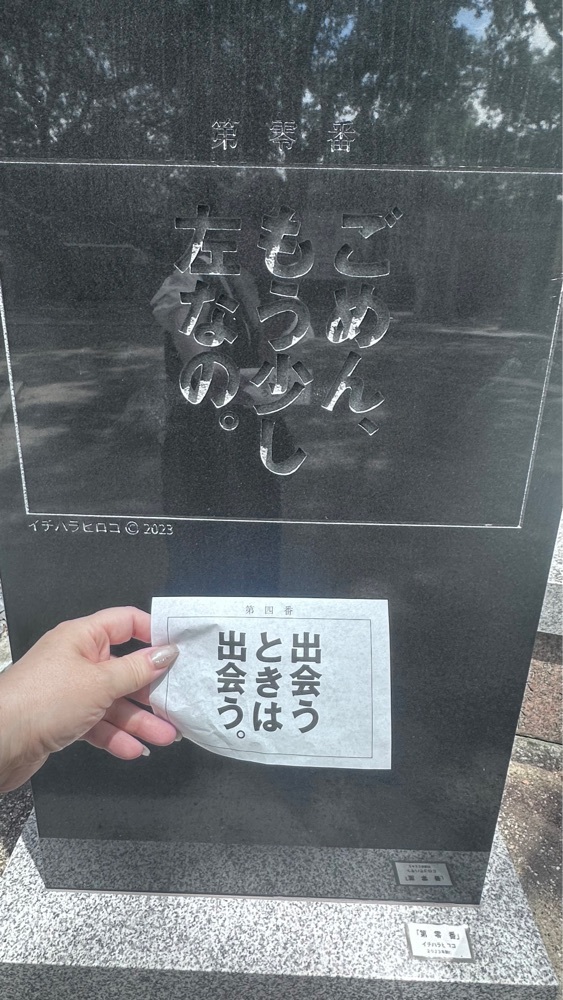 第零番
ごめん、
もう少し
左なの。
イチハラヒロコ © 2023
第四番
出会う
ときは
出会う。
「第零番」
「第零番」
イチハラヒロコ